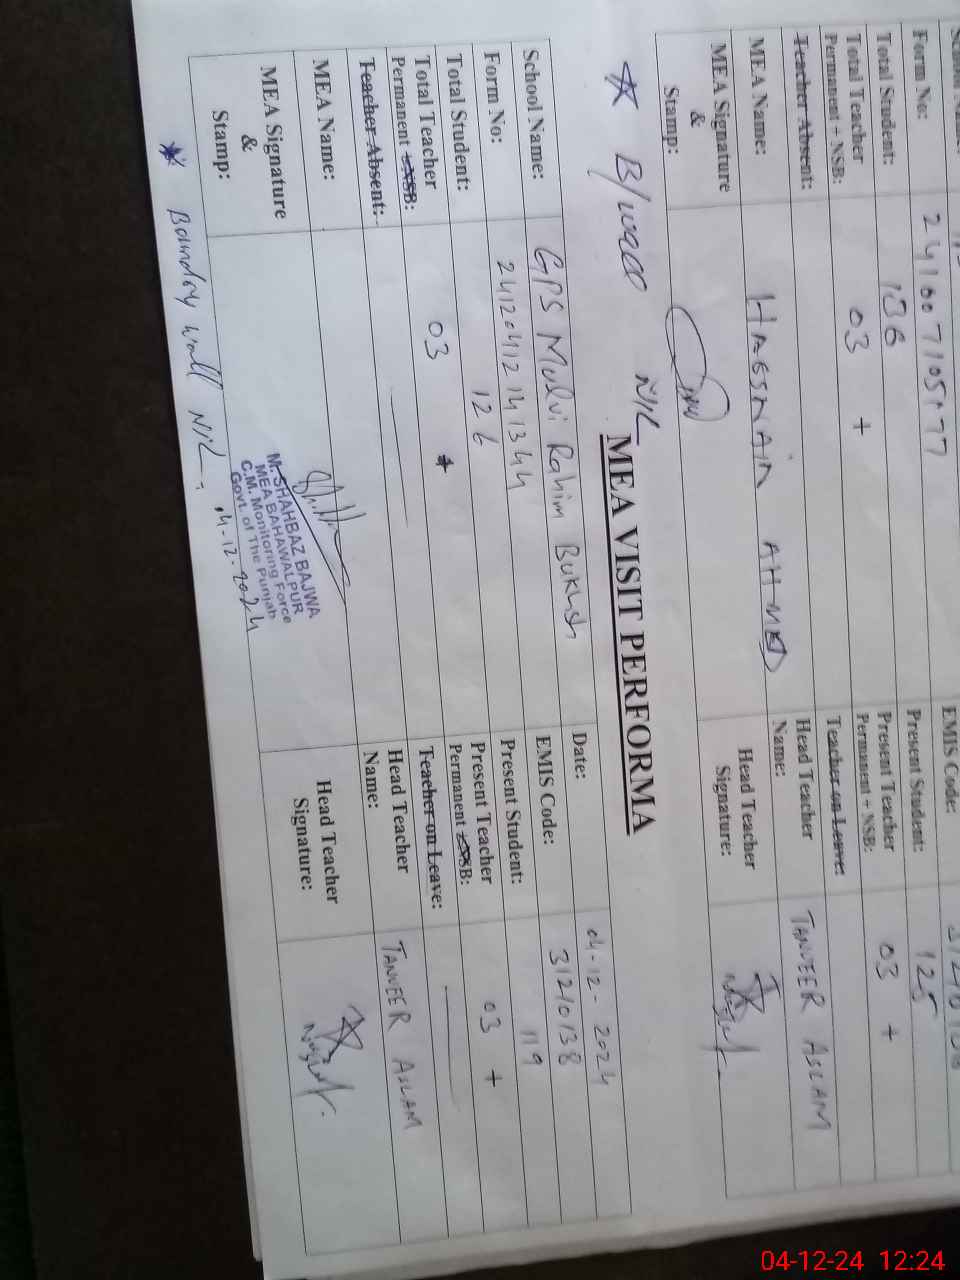 Form No: 2411007105177
Total Student: 136 Present Student: 125
Total Teacher Permanent + NSB: 03 + Present Teacher Permanent + NSB: 03 +
Teacher Absent: Teacher on Leave:
MEA Name: HASSNAIN AHMED Head Teacher Name: TANVEER ASLAM
MEA Signature & Stamp: Head Teacher Signature:
B/wall NIL
MEA VISIT PERFORMA
Date: 04-12-2024
School Name: GPS Mulvi Rahim Bukhsh EMIS Code: 31210138
Form No: 24120412141344
Total Student: 126 Present Student: 119
Total Teacher Permanent NSB: 03 + Present Teacher Permanent NSB: 03 +
Teacher Absent: Teacher on Leave:
MEA Name: Head Teacher Name: TANVEER ASLAM
MEA Signature & Stamp: Head Teacher Signature:
M. SHAHBAZ BAJWA
MEA BAHAWALPUR
C.M. Monitoring Force
Govt. of The Punjab
04-12-2024
Boundary wall NIL.
04-12-24 12:24